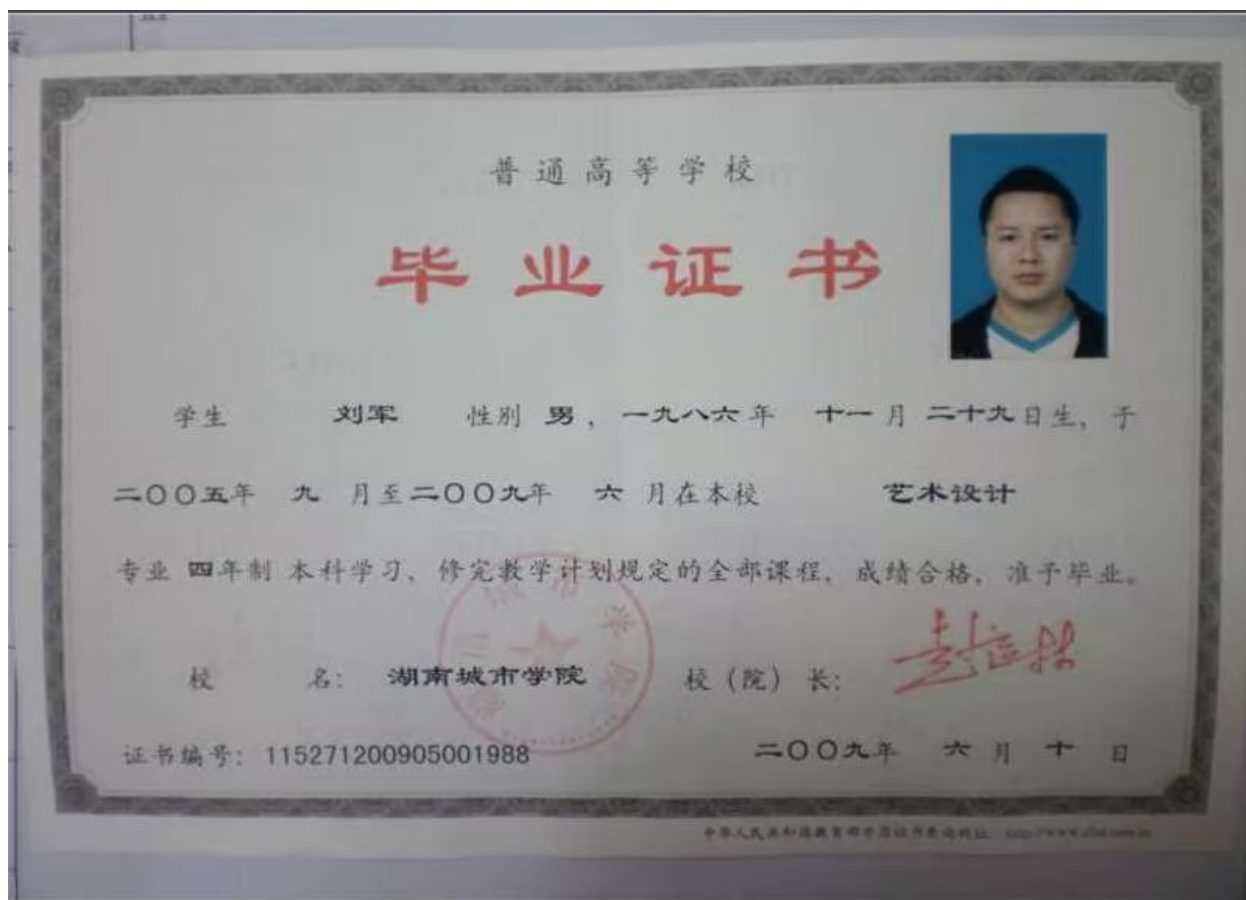 普通高等学校
毕业证书
学生 刘军 性别 男，一九八六年 十一月 二十九日生，于
二〇〇五年 九 月至二〇〇九年 六 月在本校 艺术设计
专业 四年制 本科学习，修完教学计划规定的全部课程，成绩合格，准予毕业。
校 名： 湖南城市学院 校（院）长：
证书编号：115271200905001988 二〇〇九年 六 月 十 日
中华人民共和国教育部学历证书查询网址